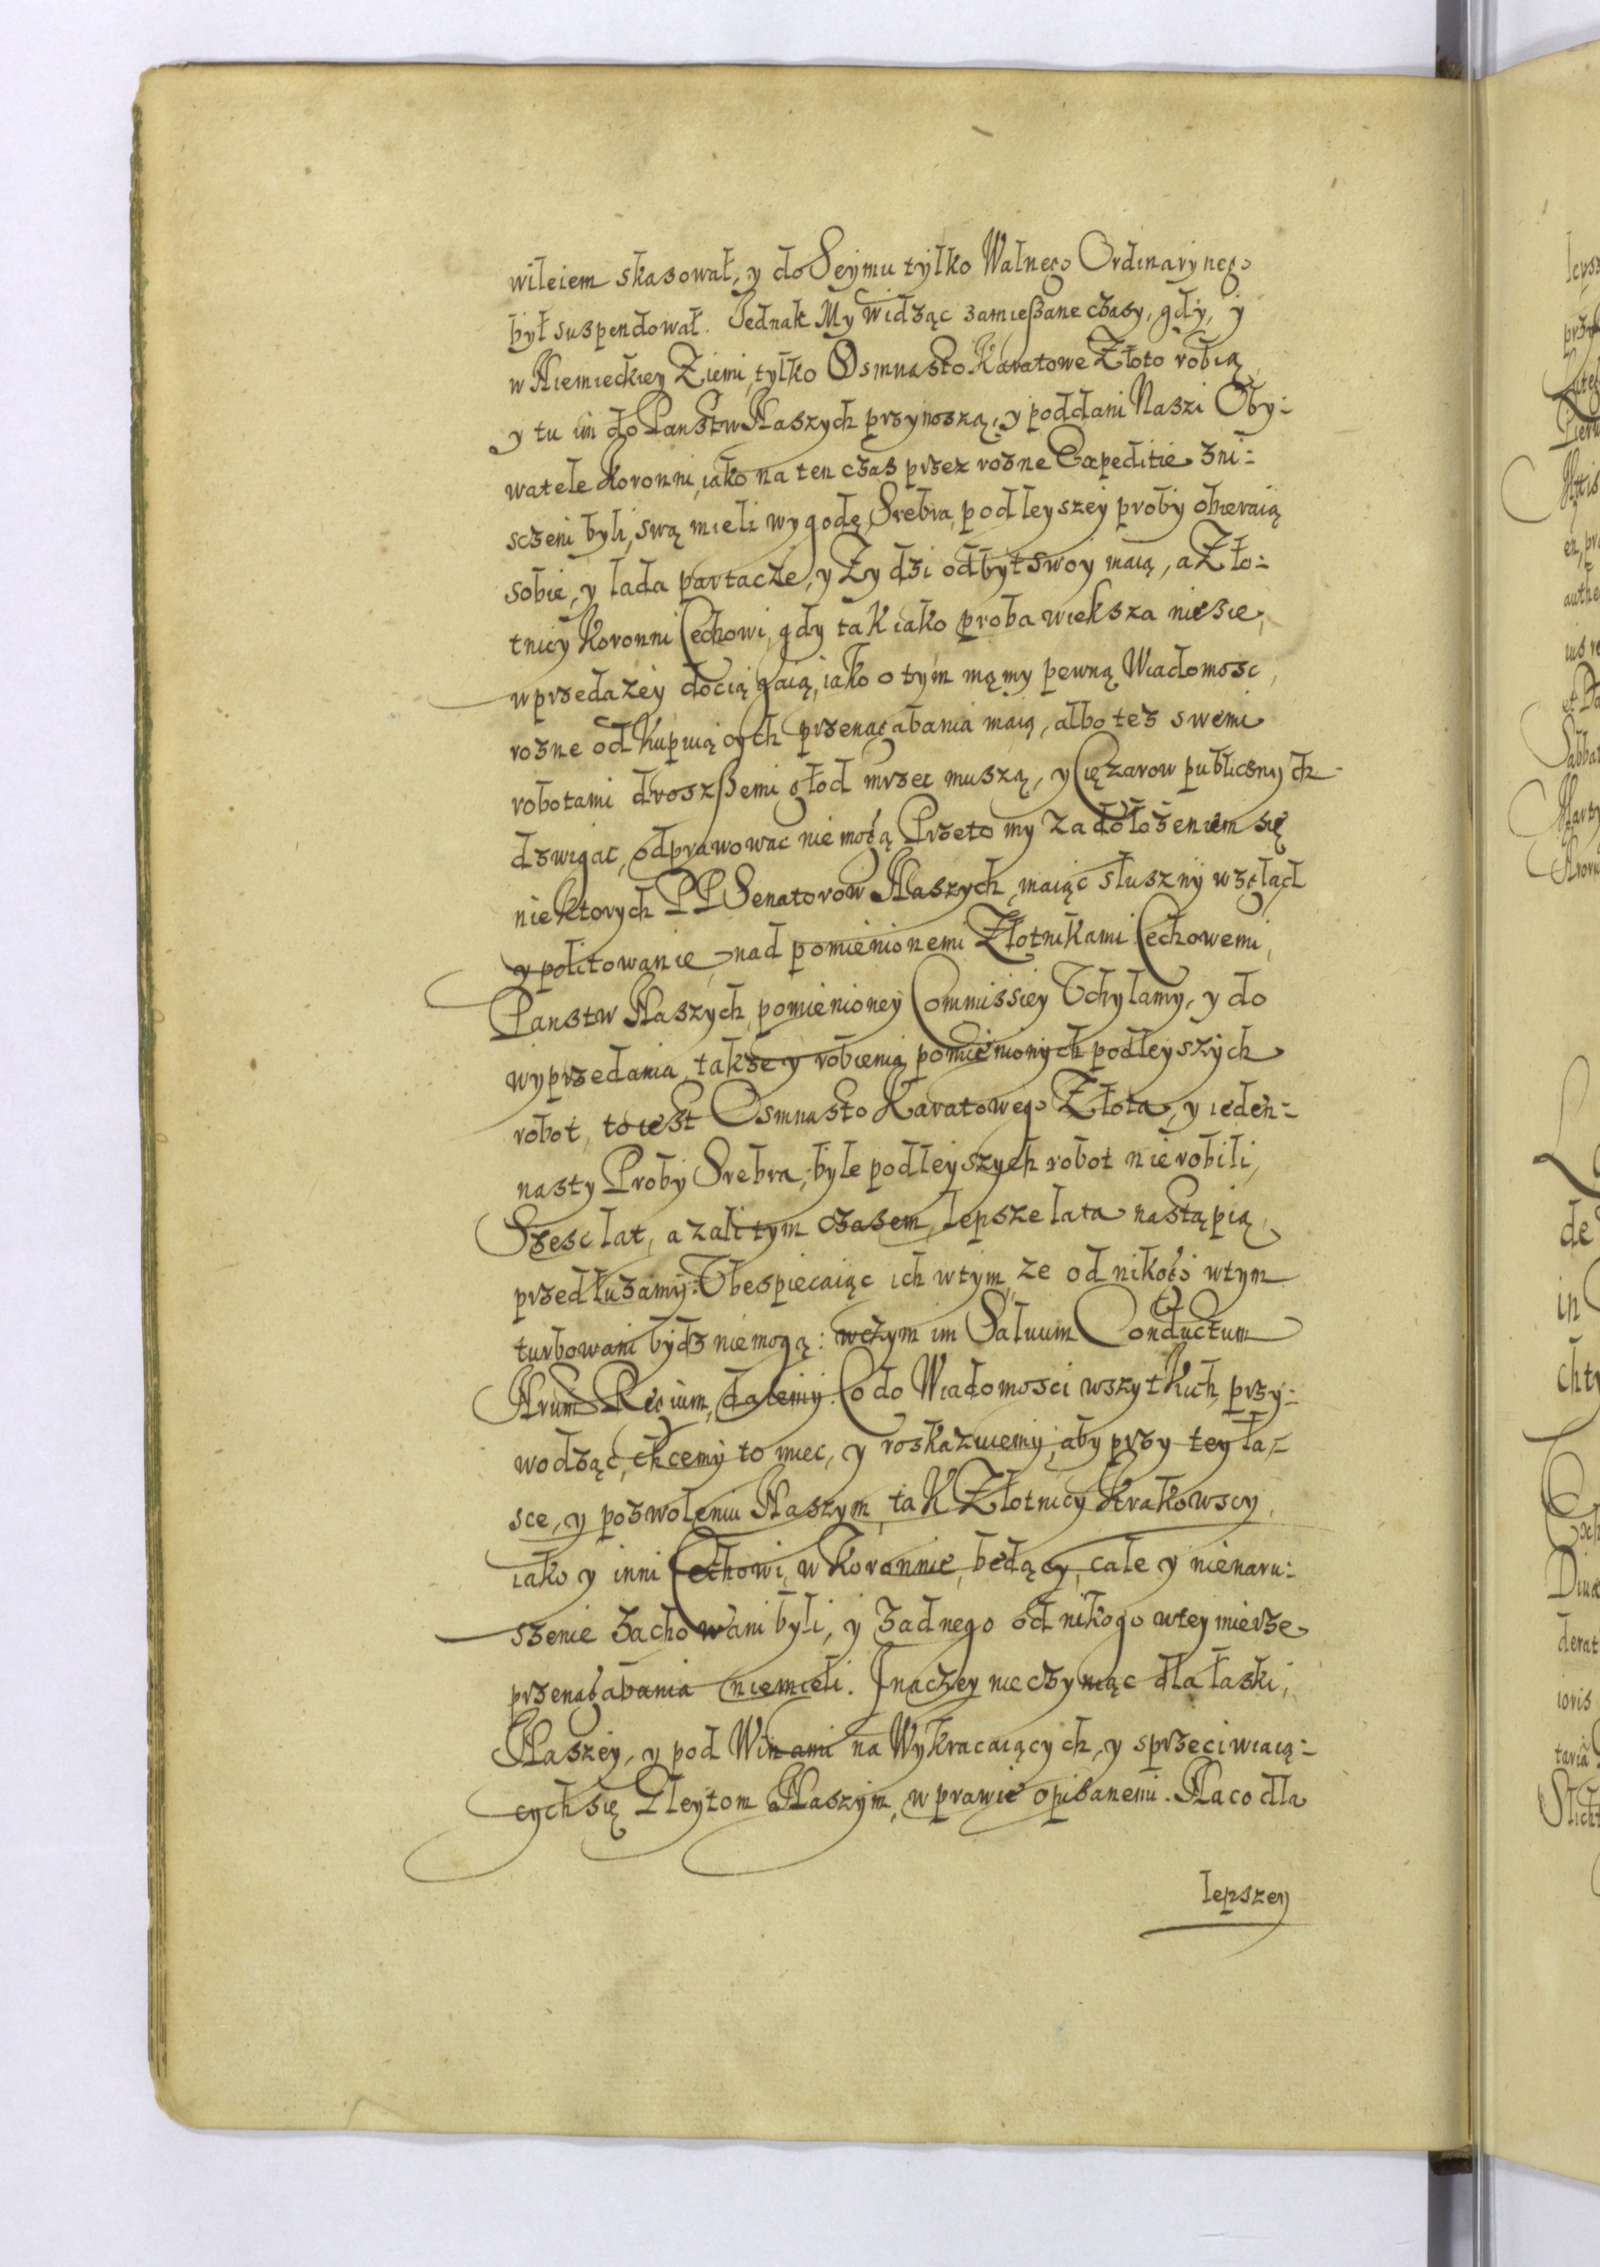 wileiem skasował, y do Seymu tylko Walnego Ordinarynego
był suspendował. Jednak My widząc zamießane czasy, gdy, y
w Niemieckiey Ziemi, tylko Osmnasto Karatowe Złoto robią,
y tu im do Panstw Naszych przynoszą, y poddani Naszi Oby-
watele Koronni, iako na ten czas przez rozne Expeditie zni-
sczeni byli, swą mieli wygodę, Srebra podleyszey proby obieraią
sobie, y lada partacze, y Zydzi odbyt swoy maią, a Zło-
tnicy Koronni Cechowi, gdy tak iako proba wieksza niesie,
w przedazey dociągaią, iako o tym mamy pewną Wiadomosc,
rozne od Kupuiących przenagabania maią, albo tez swemi
robotami droszßemi głod mrzec muszą, y Cięzarow publicznych
dzwigac, odprawowac nie mogą Przeto my za dołozeniem się
niektorych PP Senatorow Naszych, maiąc słuszny wzgląd
y politowanie, nad pomienionemi Złotnikami Cechowemi,
Panstw Naszych, pomienioney Commissiey Uchylamy, y do
wyprzedania, takze y robienia pomienionych podleyszych
robot, to iest Osmnasto Karatowego Złota, y ieden-
nasty Proby Srebra, byle podleyszych robot nie robili,
Szesc lat, azali tym czasem, lepsze lata nastąpią,
przedłuzamy. Ubespiecaiąc ich w tym, ze od nikogo w tym
turbowani bydz nie mogą: w czym im Saluum Conductum
Nrum Regium, daiemy. Co do Wiadomosci wszytkich przy-
wodząc, chcemy to miec, y roskazuiemy, aby przy tey ła-
sce, y pozwoleniu Naszym, tak Złotnicy Krakowscy,
iako y inni Cechowi, w Koronnie, będący, cale y nienaru-
szenie zachowani byli, y zadnego od nikogo w tey mierze
przenagabania niemieli. Jnaczey nie czyniąc dla łaski,
Naszey, y pod Winami na Wykracaiących, y sprzeciwiaią-
cych się Gleytom Naszym, w prawie opisanemi. Na co dla
lepszey